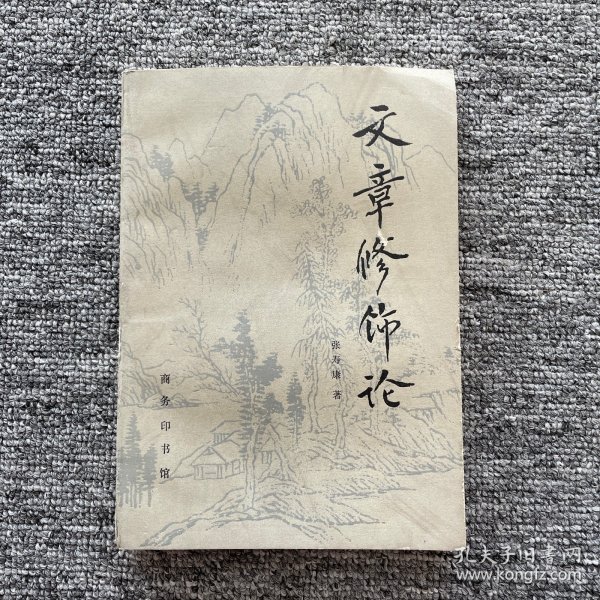 文章修饰论
张寿康 著
商务印书馆
孔夫子旧书网
www.kongfz.com